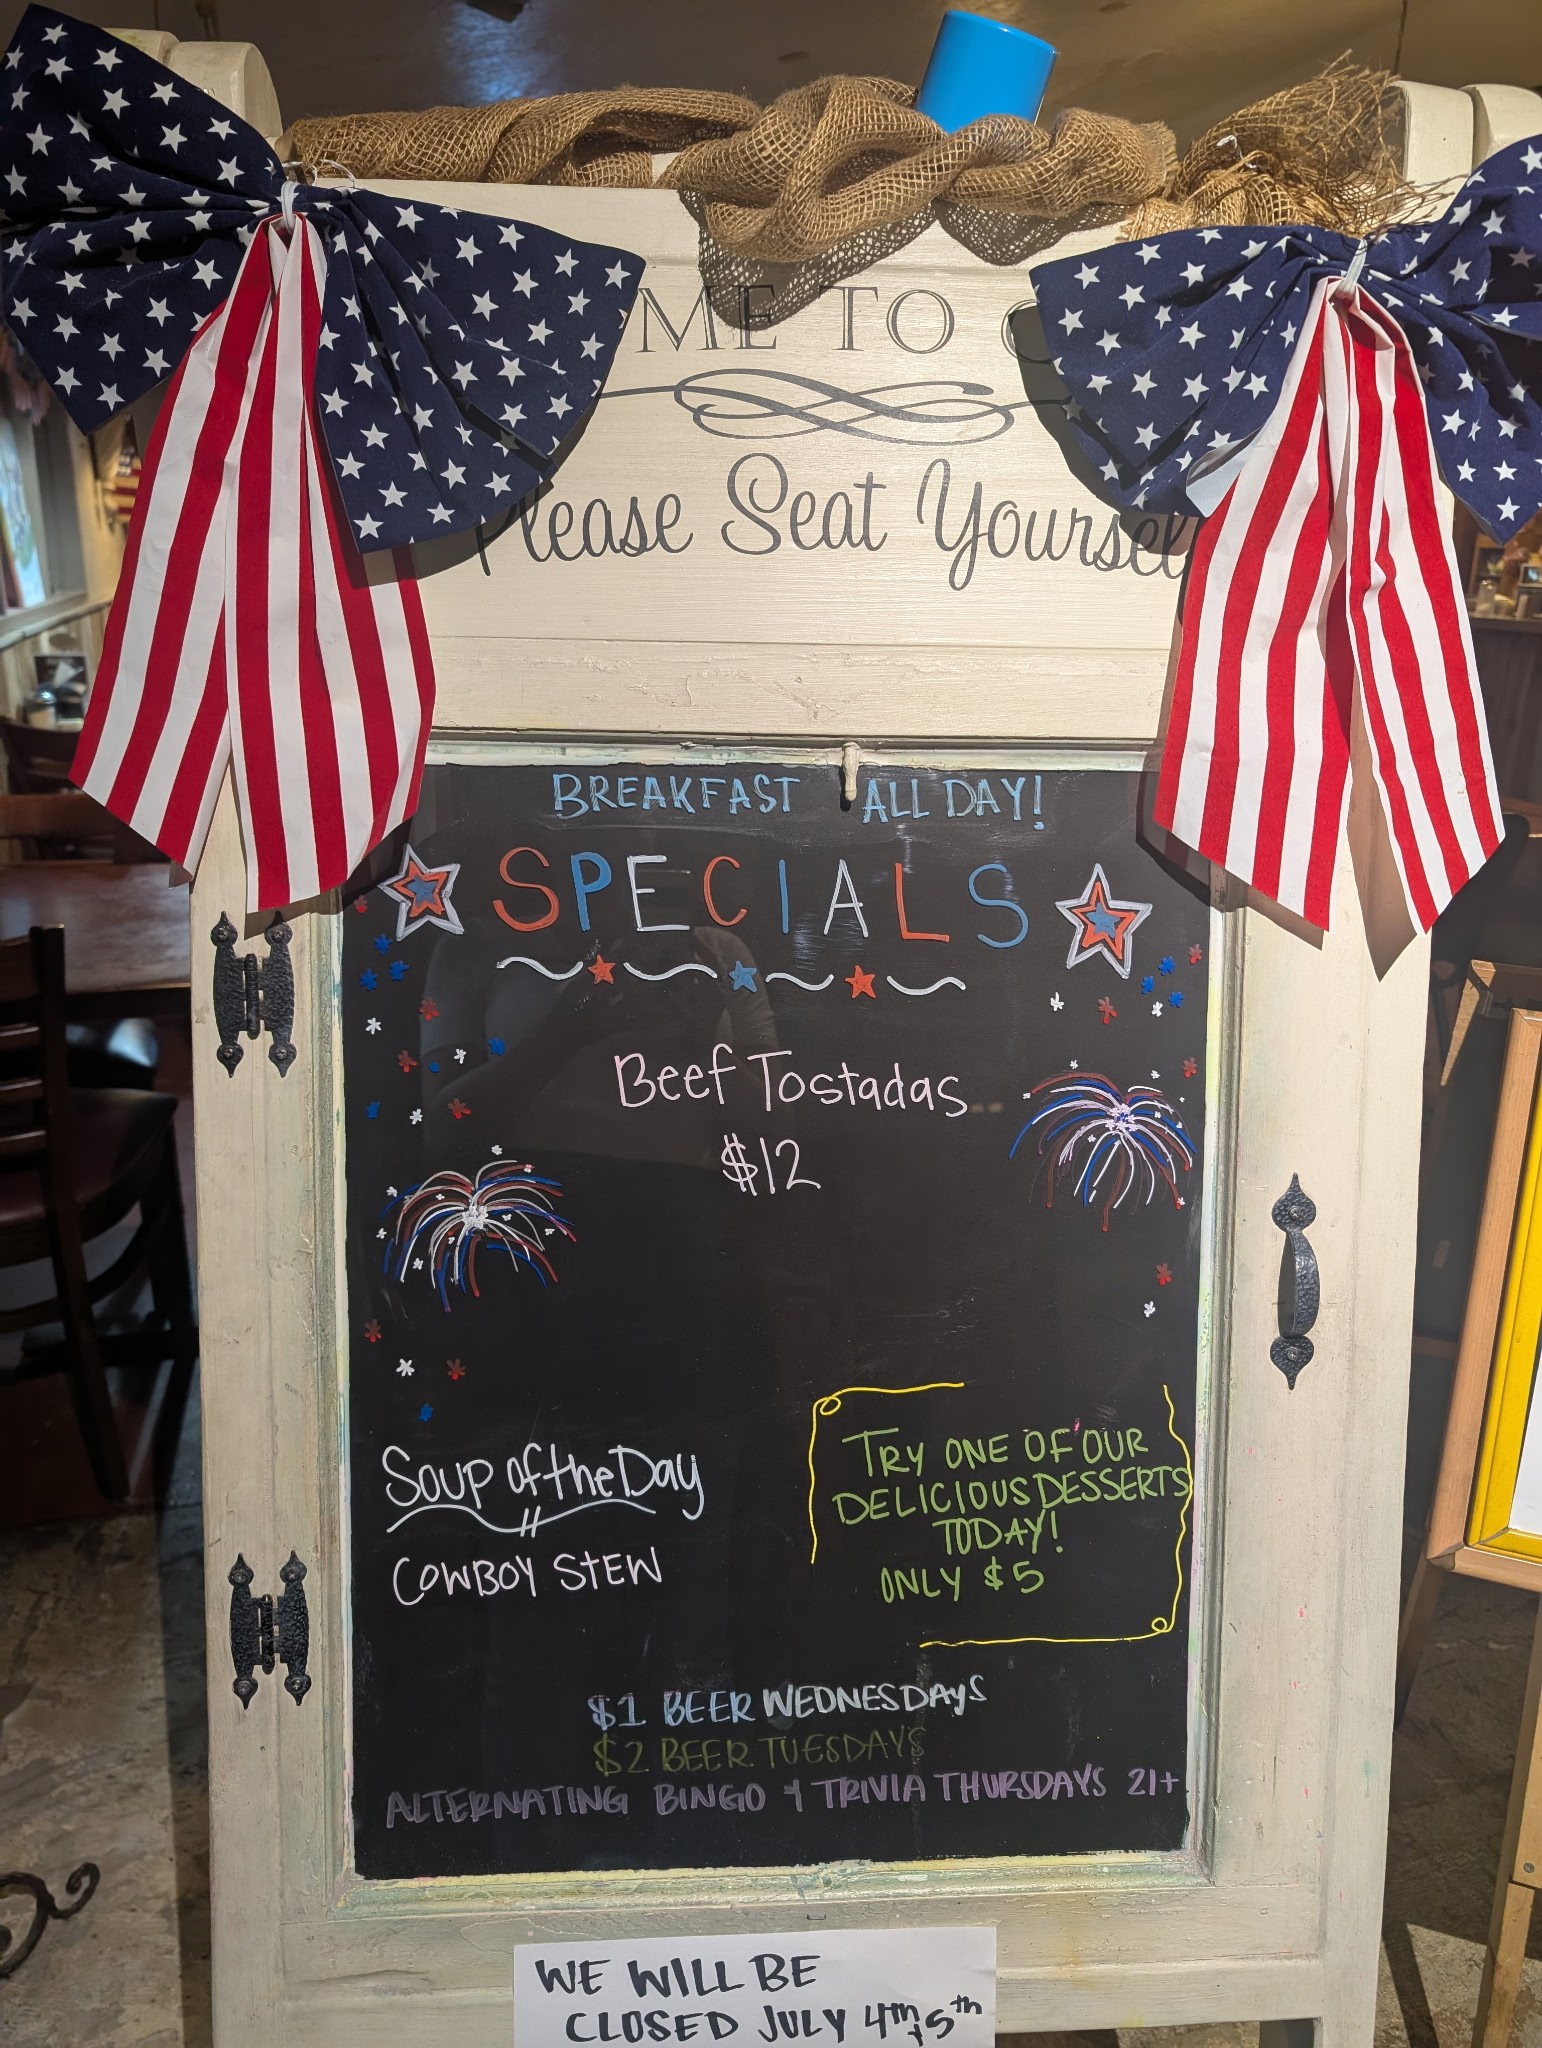 ME TO
Please Seat Yourself
BREAKFAST ALL DAY!
SPECIALS
Beef Tostadas
$12
Soup of the Day
COWBOY STEW
TRY ONE OF OUR
DELICIOUS DESSERTS
TODAY!
ONLY $5
$1 BEER WEDNESDAYS
$2 BEER TUESDAYS
ALTERNATING BINGO & TRIVIA THURSDAYS 21+
WE WILL BE
CLOSED JULY 4TH + 5th